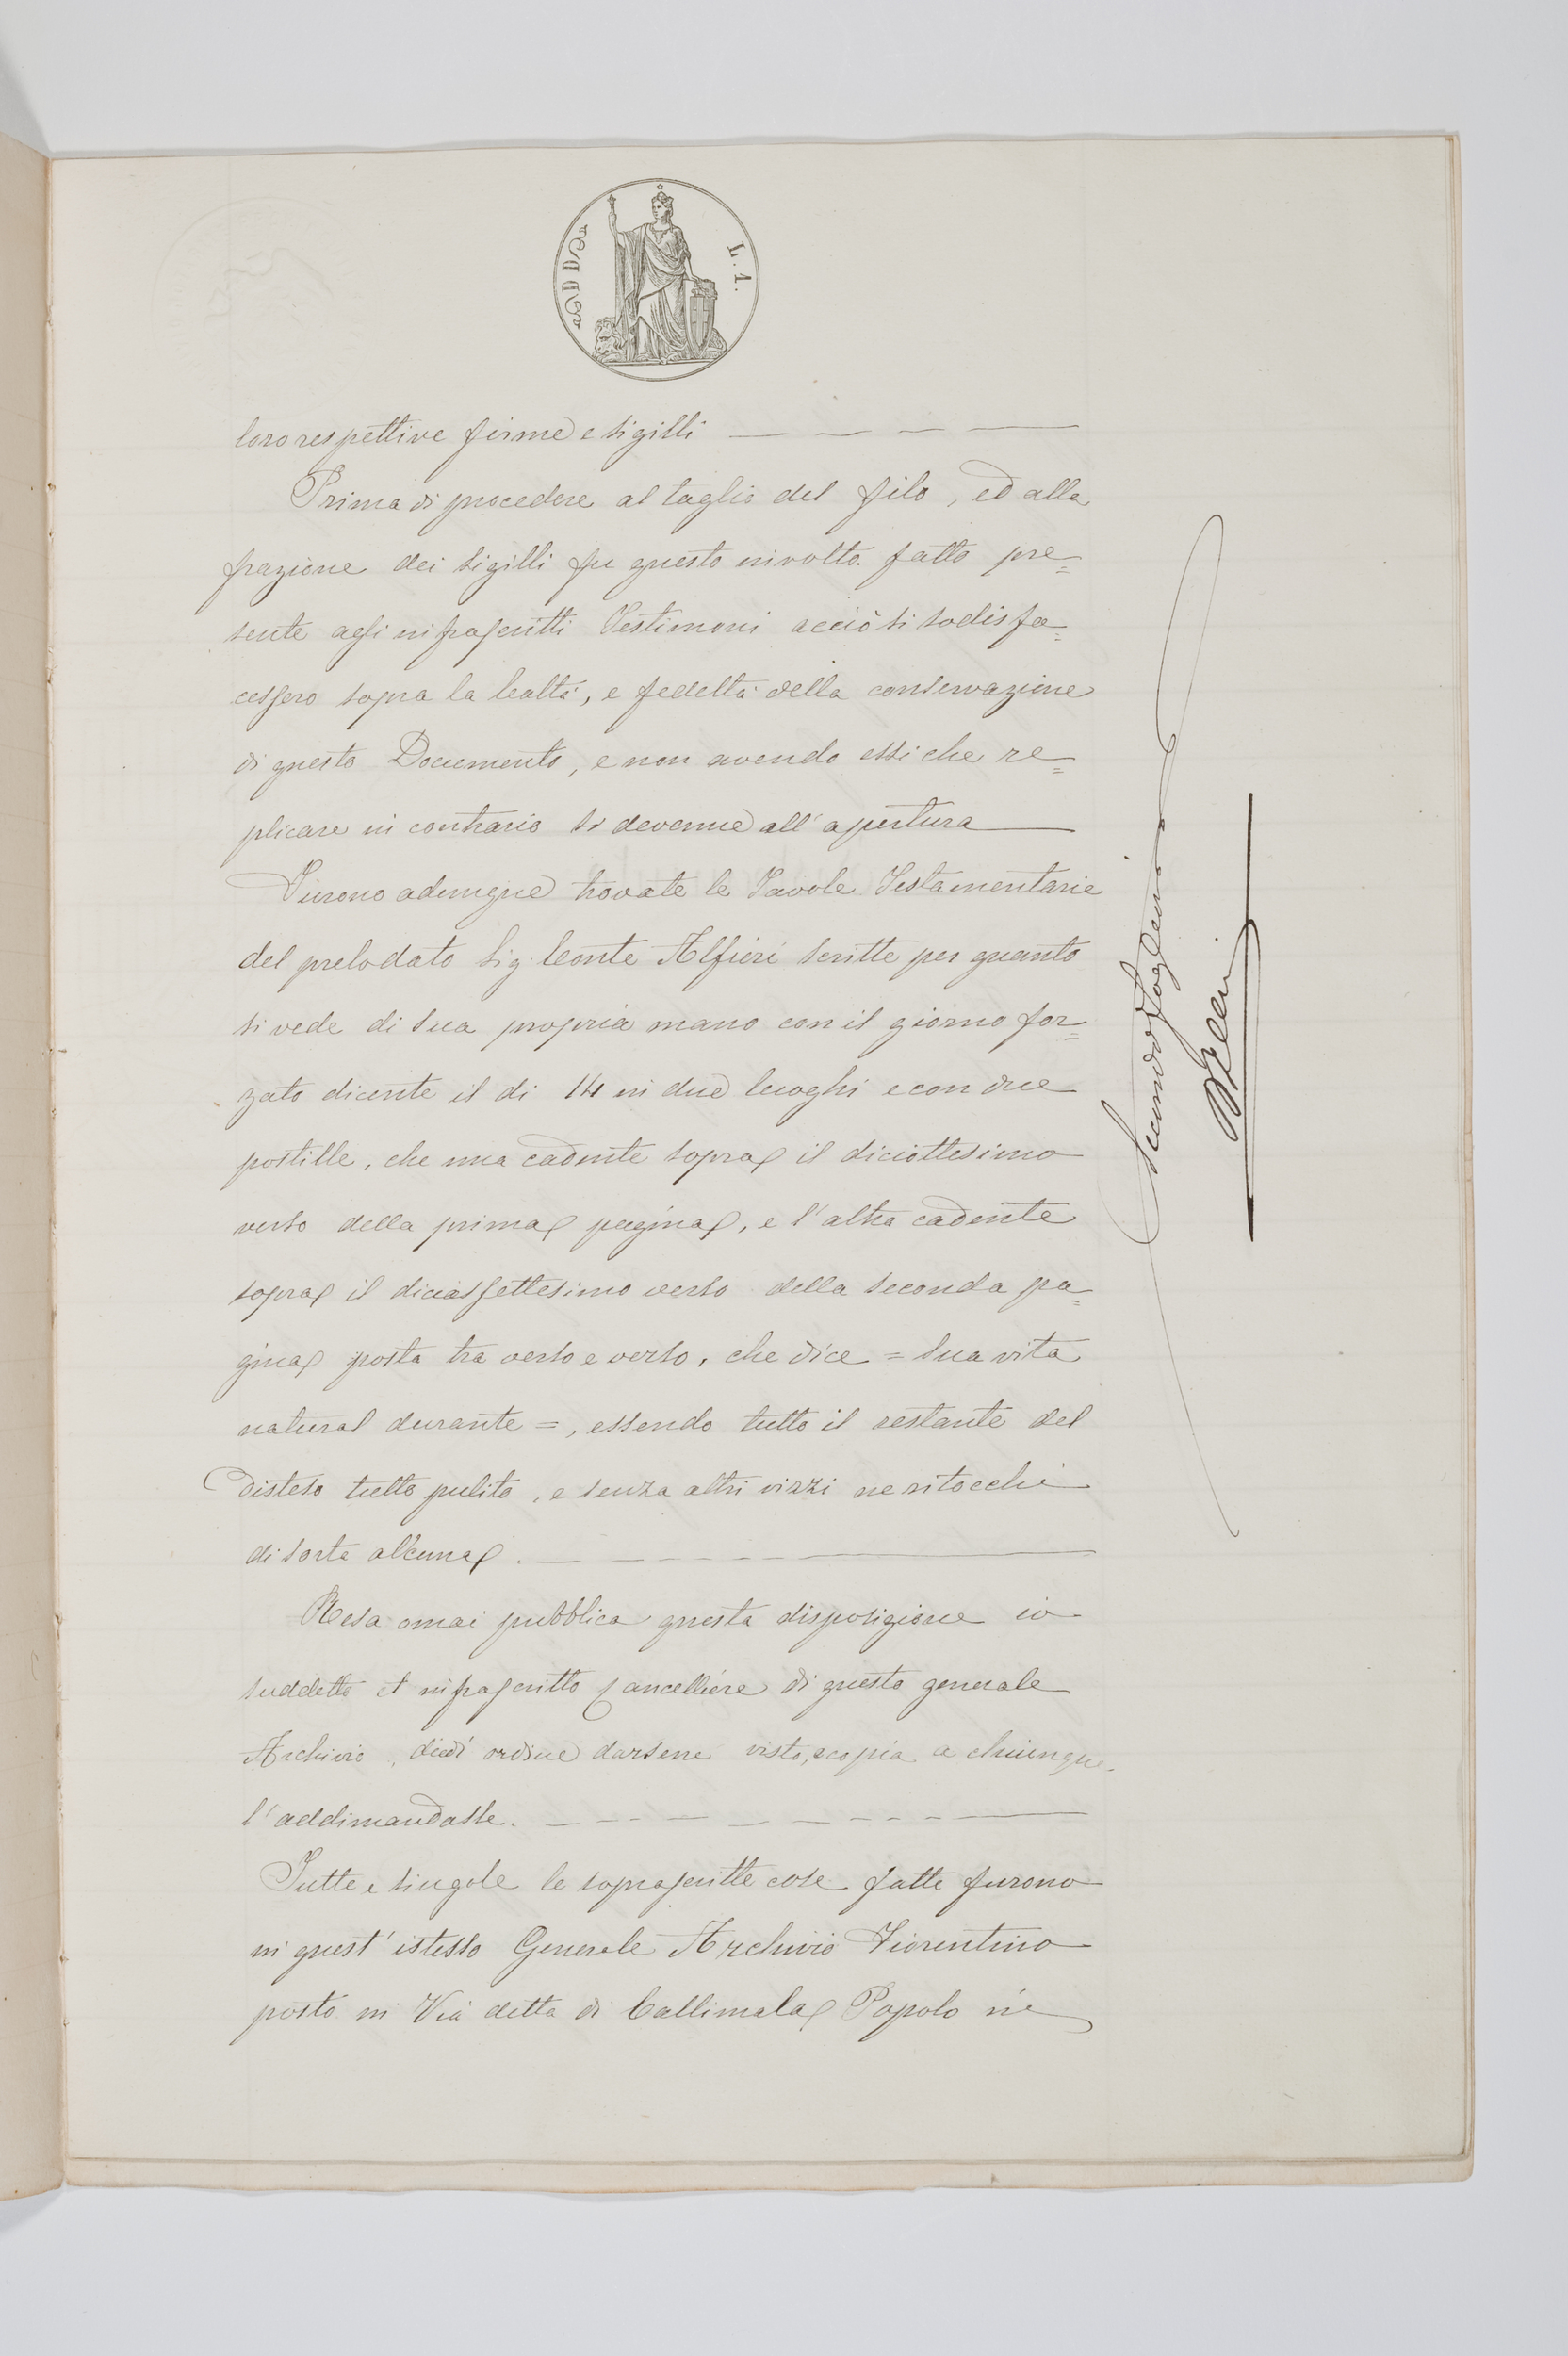 L. 1.
loro respettive firme e sigilli
Prima di procedere al taglio del filo, ed alla
frazione dei sigilli fu questo involto fatto pre=
sente agli infrascritti Testimoni acciò si sodisfa=
cessero sopra la lealtà, e fedeltà della conservazione
di questo Documento, e non avendo essi che re=
plicare in contrario si devenne all'apertura
Furono adunque trovate le Tavole Testamentarie
del prelodato Sig. Conte Alfieri scritte per quanto
si vede di sua propria mano con il giorno for=
zato dicente il di 14 in due luoghi e con due
postille, che una cadente sopra il diciottesimo
verso della prima pagina, e l'altra cadente
sopra il diciassettesimo verso della seconda pa=
gina posta tra verso e verso, che dice = sua vita
natural durante =, essendo tutto il restante del
disteso tutto pulito, e senza altri vizzi ne ritocchi
di sorte alcuna.
Resa omai pubblica questa disposizione io
suddetto et infrascritto Cancelliere di questo generale
Archivio, diedi ordine darsene visto, e copia a chiunque
l'addimandasse.
Tutte e singole le soprascritte cose fatte furono
in quest'istesso Generale Archivio Fiorentino
posto in Via detta di Callimala Popolo ne